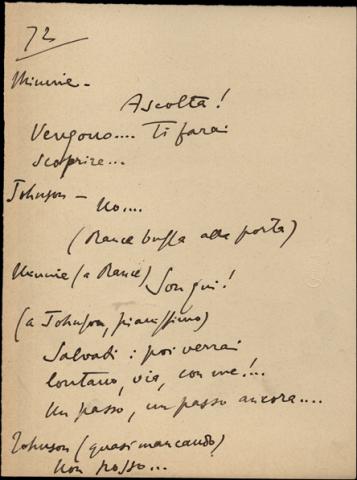 72
Minnie -
Ascolta!
Vengono.... Ti farai
scoprire...
Johnson -
No....
(Rance bussa alla porta)
Minnie (a Rance) Son qui!
(a Johnson, pianissimo)
Salvati: poi verrai
lontano, via, con me!...
Un passo, un passo ancora....
Johnson (quasi mancando)
Non posso...